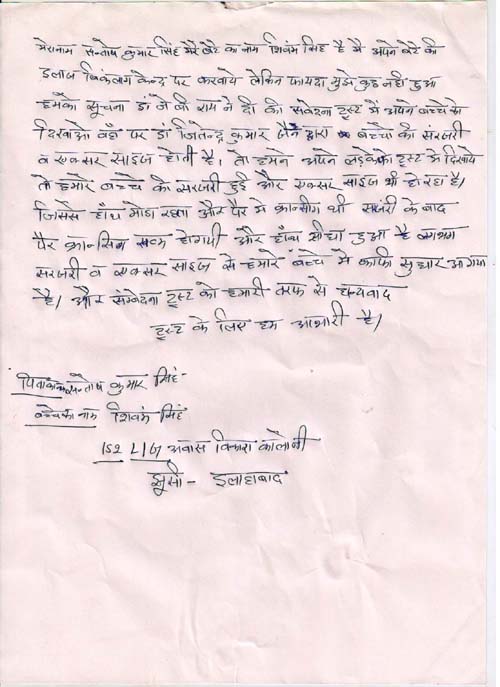 मेरा नाम सन्तोष कुमार सिंह मेरे बेटे का नाम शिवंम सिंह है मै अपने बेटे की
इलाज विकंलाग केन्द्र पर करवाये लेकिन फायदा मुझे कुछ नही हुआ
हमको सूचना डा जे बी राय ने दी की सवेदना ट्रस्ट में अपने बच्चे को
दिखाओ वहाँ पर डा जितेन्द्र कुमार जैन द्वारा बच्चो की सरजरी
व एक्सर साइज होती है। तो हमने अपने लड़के को ट्रस्ट मे दिखाये
तो हमारे बच्चे की सरजरी हुई और एक्सर साइज भी हो रहा है।
जिससे हाँथ मोडा रहता और पैर मे क्रान्सीग थी सर्जरी के बाद
पैर क्रान्सिग खत्म होगयी और हाँथ सीधा हुआ है
सरजरी व एक्सर साइज से हमारे बच्चे मे काफी सुधार आ गया
है। और संम्बेदना ट्रस्ट को हमारी तरफ से धन्यवाद
ट्रस्ट के लिए हम आभारी है।
पिता का सन्तोष कुमार सिंह
बच्चे का नाम शिवंम सिंह
152 LIG अवास विकास कालोनी
झूसी - इलाहाबाद